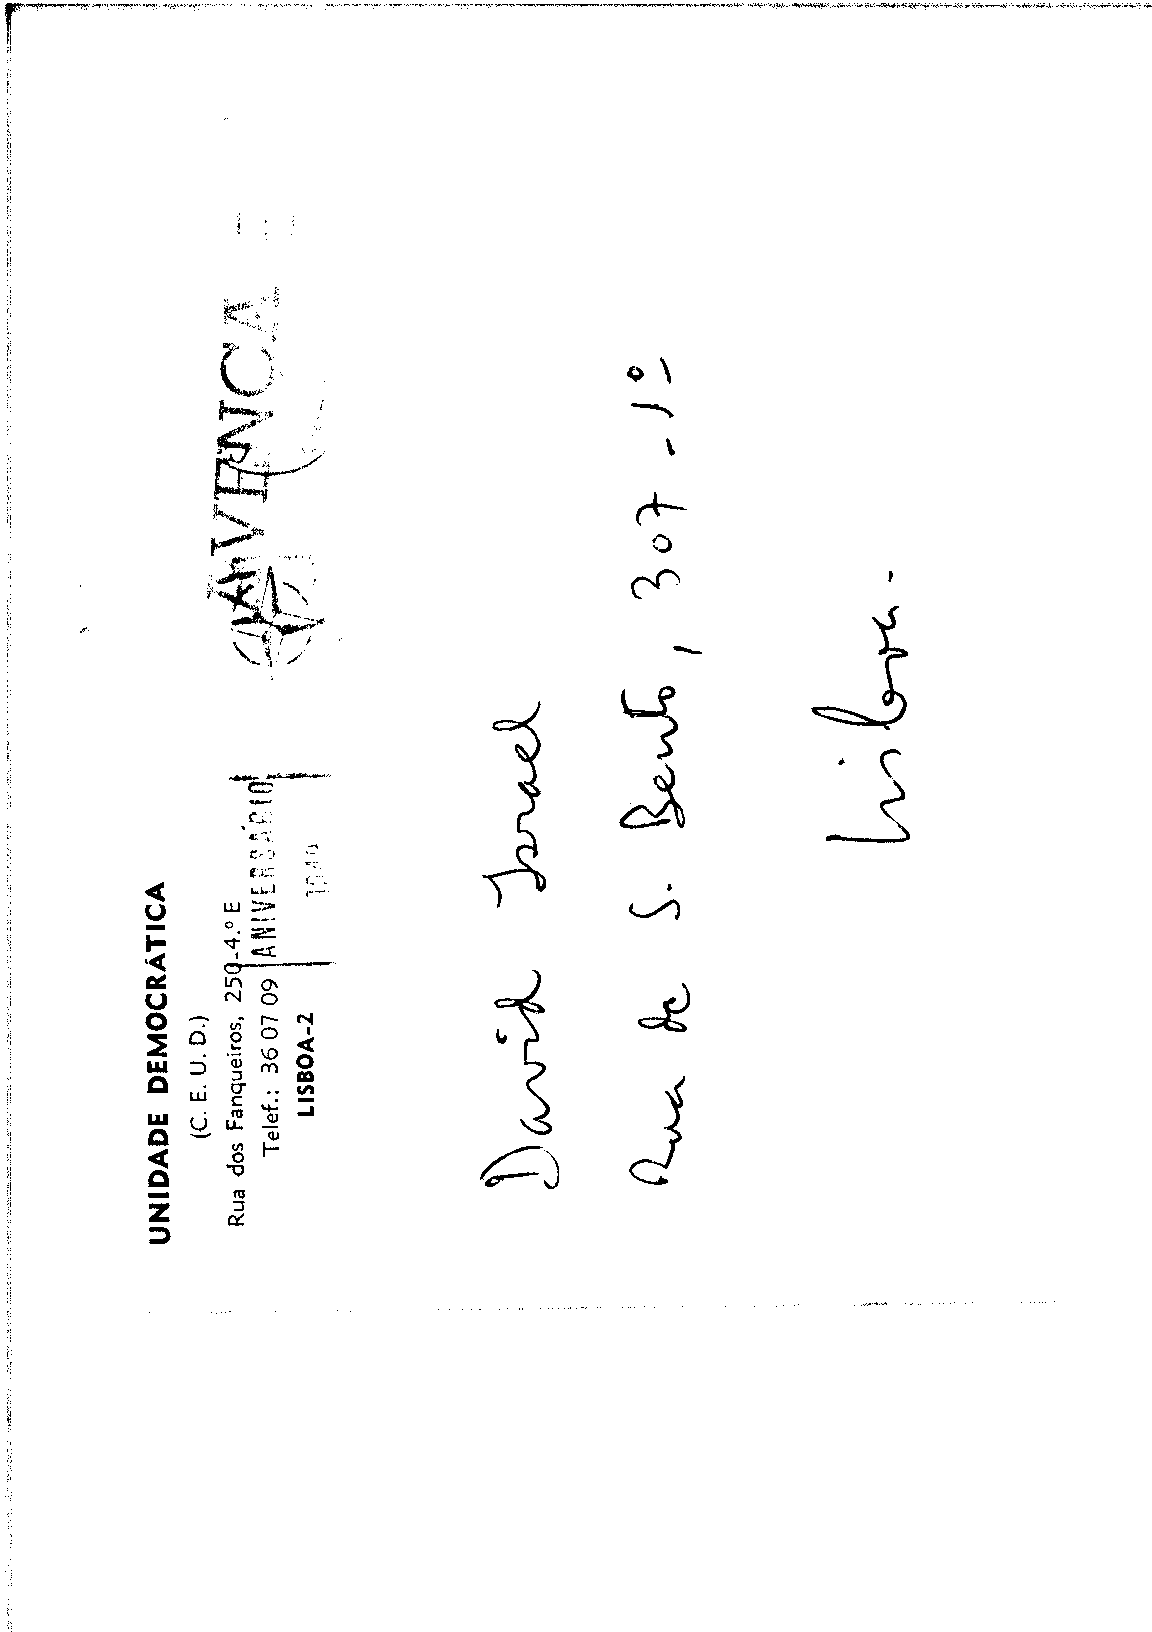 UNIDADE DEMOCRÁTICA
(C. E. U. D.)
Rua dos Fanqueiros, 250-4.º E
Telef.: 36 07 09
LISBOA-2
ANIVERSÁRIO
AVENÇA
David Israel
Rua de S. Bento, 307 - 1º
Lisboa -